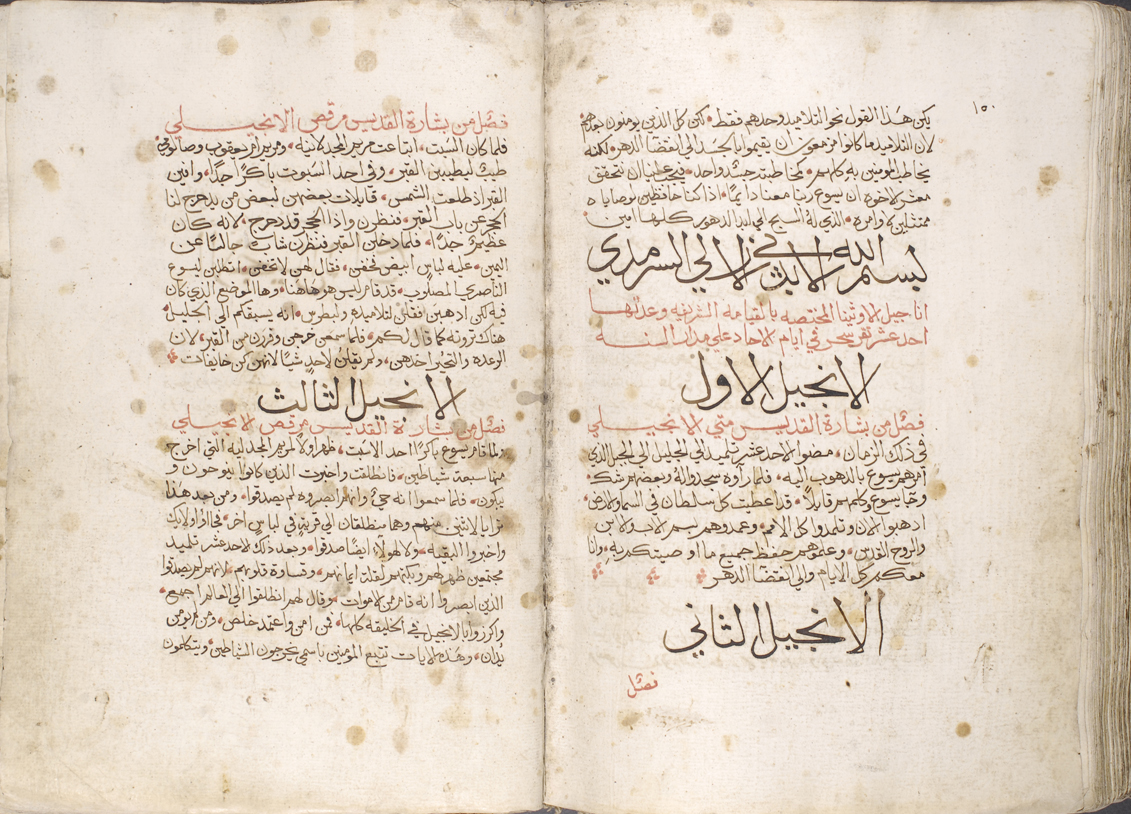 ١٥٠
يكن هذا القول نحو التلاميذ وحدهم فقط. لكن كل الذين يومنون بعدهم
لان التلاميذ ما كانوا مزمعون ان يقيموا بالجسد الى انقضا الدهر. لكنه
يخاطب المومنين به كلهم. كمخاطبته جسد واحد. فيجب علينا ان نتحقق
معشر الاخوه ان يسوع ربنا معنا دايمًا. اذا كنا حافظين لوصاياه
ممتثلين لاوامره. الذي له السبح الى ابد الدهور كلها امين
بسم الله الابدي الازلي السرمدي
اناجيل الاوثينا المختصه بالقيامه الشريفه وعدتها
احد عشر تقرى سحر في ايام الاحاد على مدار السنه
الانجيل الاول
فصل من بشارة القديس متى الانجيلي
في ذلك الزمان. مضوا الاحد عشر تلميذ الى الجليل الى الجبل الذي
امرهم يسوع بالذهوب اليه. فلما راوه سجدوا له وبعضهم شك.
وجا يسوع وكلمهم قايلاً. قد اعطيت كل سلطان في السما والارض
اذهبوا الان وتلمذوا كل الامم. وعمدوهم بسم الاب والابن
والروح القدس. وعلموهم حفظ جميع ما اوصيتكم به. وانا
معكم كل الايام والى انقضا الدهر
الانجيل الثاني
فصل
فصل من بشارة القديس مرقص الانجيلي
فلما كان السبت. ابتاعت مريم المجدلانيه. ومريم ام يعقوب وصالومي
طيبًا ليطيبن القبر. وفي احد السبوت باكرًا جدًا. وافين
القبر اذ طلعت الشمس. قايلات بعضهن لبعض من يدحرج لنا
الحجر عن باب القبر. فنظرن واذا الحجر قد دحرج. لانه كان
عظيمًا جدًا. فلما دخلن القبر فنظرن شاب جالسًا عن
اليمين. عليه لباس ابيض فخفن. فقال لهن لا تخفن. انتطلبن يسوع
الناصري المصلوب. قد قام ليس هو هاهنا. وها الموضع الذي كان
فيه لكن اذهبن فقلن لتلاميذه ولبطرس. انه يسبقكم الى الجليل.
هناك ترونه كما قال لكم. فلما سمعن خرجن وفررن من القبر. لان
الرعده والتحير اخذهن. ولم يقلن لاحدٍ شيًا لانهن كن خايفات
الانجيل الثالث
فصل من بشارة القديس مرقص الانجيلي
ولما قام يسوع باكرًا احد السبت. ظهر اولاً لمريم المجدليه التي اخرج
منها سبعة شياطين. فانطلقت واخبرت الذين كانوا ينوحون و
يبكون. فلما سمعوا انه حيٌ وانها ابصروه لم يصدقوا. ومن بعد هذا
ترايا لاثنين منهم وهما منطلقان الى قريةٍ في لباسٍ اخر. فجاا اولايك
واخبروا البقيه. ولا لهولاء ايضًا صدقوا. وبعد ذلك لاحد عشر تلميذ
مجتمعين ظهر لهم وبكتهم لقلت ايمانهم. وقساوة قلوبهم. لانهم لم يصدقوا
الذين ابصروا انه قام من الاموات وقال لهم انطلقوا الى العالم اجمع.
واكرزوا بالانجيل في الخليقه كلها. فمن امن واعتمد خلص. ومن لم يومن
يدان. وهذه الايات تتبع المومنين باسمي يخرجون الشياطين. ويتكلمون